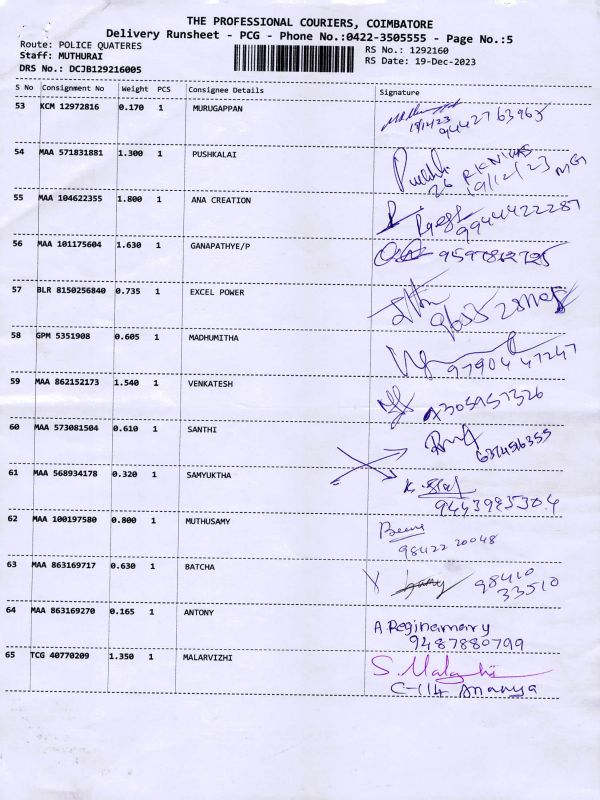 THE PROFESSIONAL COURIERS, COIMBATORE
Delivery Runsheet - PCG - Phone No.:0422-3505555 - Page No.:5
Route: POLICE QUATERES
Staff: MUTHURAI
DRS No.: DCJB129216005
RS No.: 1292160
RS Date: 19-Dec-2023
S No Consignment No Weight PCS Consignee Details Signature
53 KCM 12972816 0.170 1 MURUGAPPAN
19/12/23
9442763965
54 MAA 571831881 1.300 1 PUSHKALAI
19/12/23
55 MAA 104622355 1.800 1 ANA CREATION
9944422287
56 MAA 101175604 1.630 1 GANAPATHYE/P
57 BLR 8150256840 0.735 1 EXCEL POWER
58 GPM 5351908 0.605 1 MADHUMITHA
9790447247
59 MAA 862152173 1.540 1 VENKATESH
60 MAA 573081504 0.610 1 SANTHI
61 MAA 568934178 0.320 1 SAMYUKTHA
9443985304
62 MAA 100197580 0.800 1 MUTHUSAMY
98422 20048
63 MAA 863169717 0.630 1 BATCHA
98410
33510
64 MAA 863169270 0.165 1 ANTONY
A Reginamary
9487880799
65 TCG 40770209 1.350 1 MALARVIZHI
C-114 Ananya